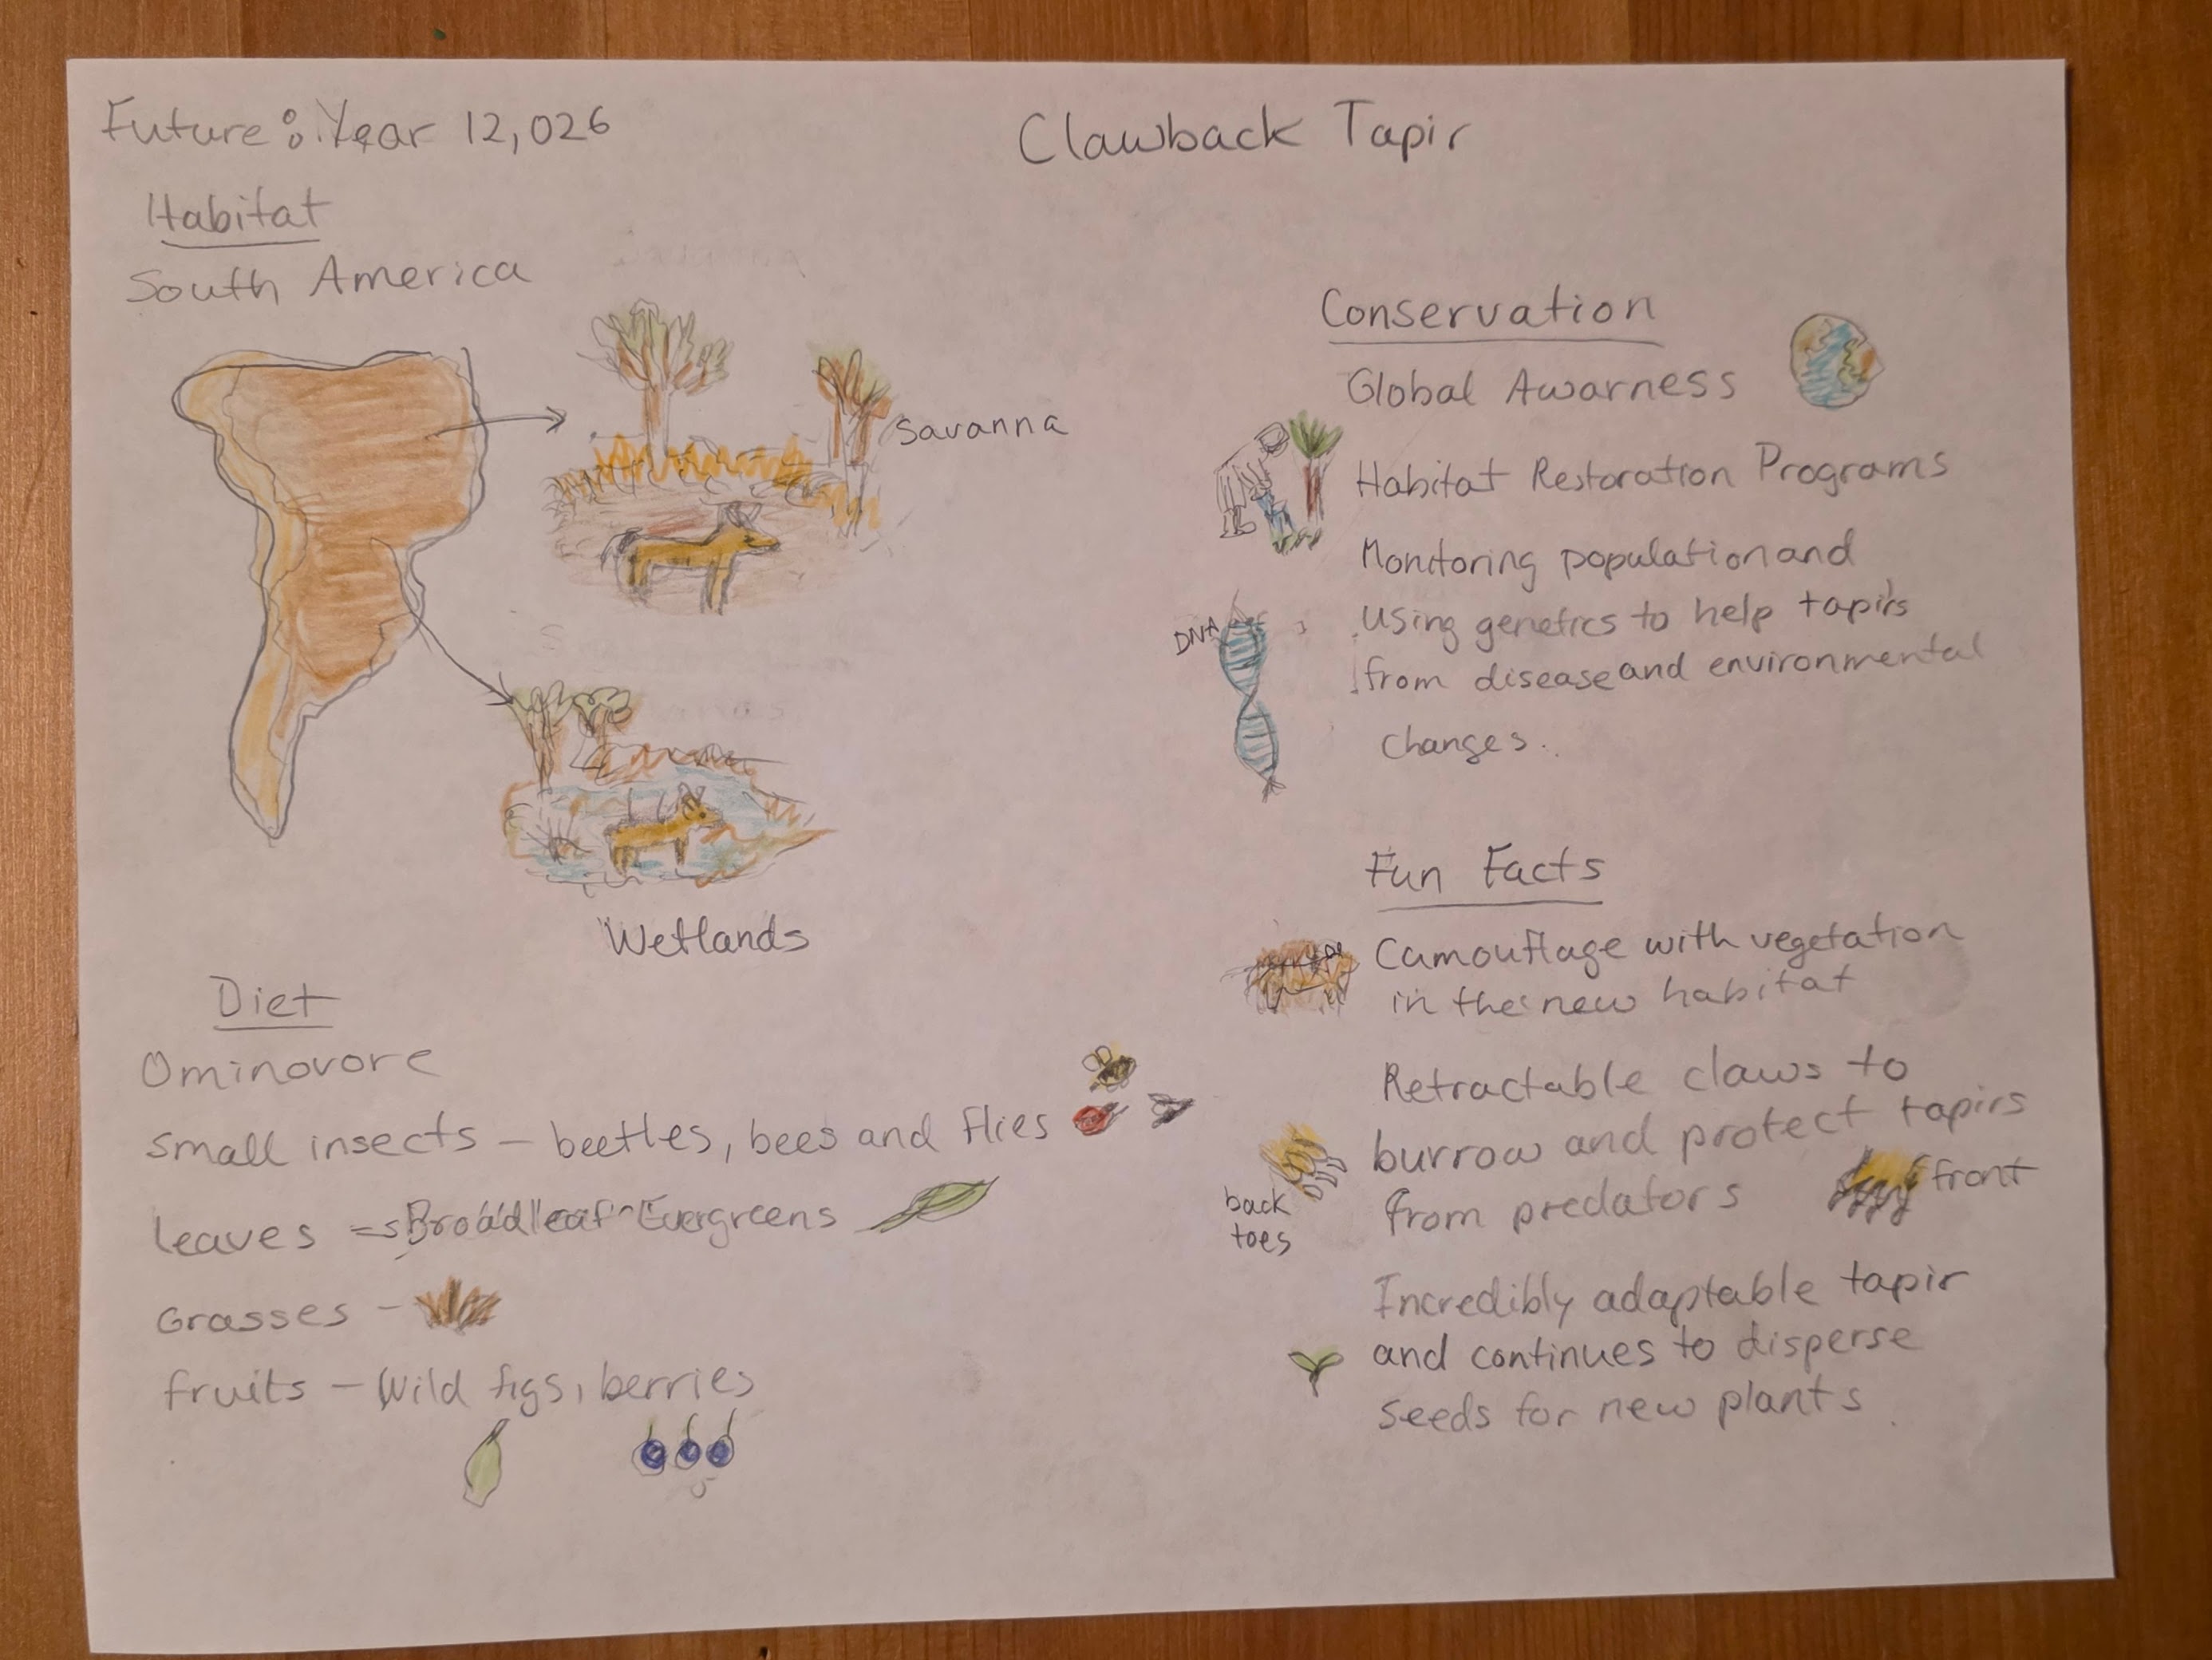 Future: Year 12,026
Clawback Tapir
Habitat
South America
Savanna
Wetlands
Diet
Ominovore
Small insects – beetles, bees and flies
leaves – Broadleaf Evergreens
Grasses –
fruits – Wild figs, berries
Conservation
Global Awarness
Habitat Restoration Programs
Monitoring population and
DNA
Using genetics to help tapirs
from disease and environmental
changes.
Fun Facts
Camouflage with vegetation
in the new habitat
Retractable claws to
burrow and protect tapirs
from predators
front
back
toes
Incredibly adaptable tapir
and continues to disperse
seeds for new plants.